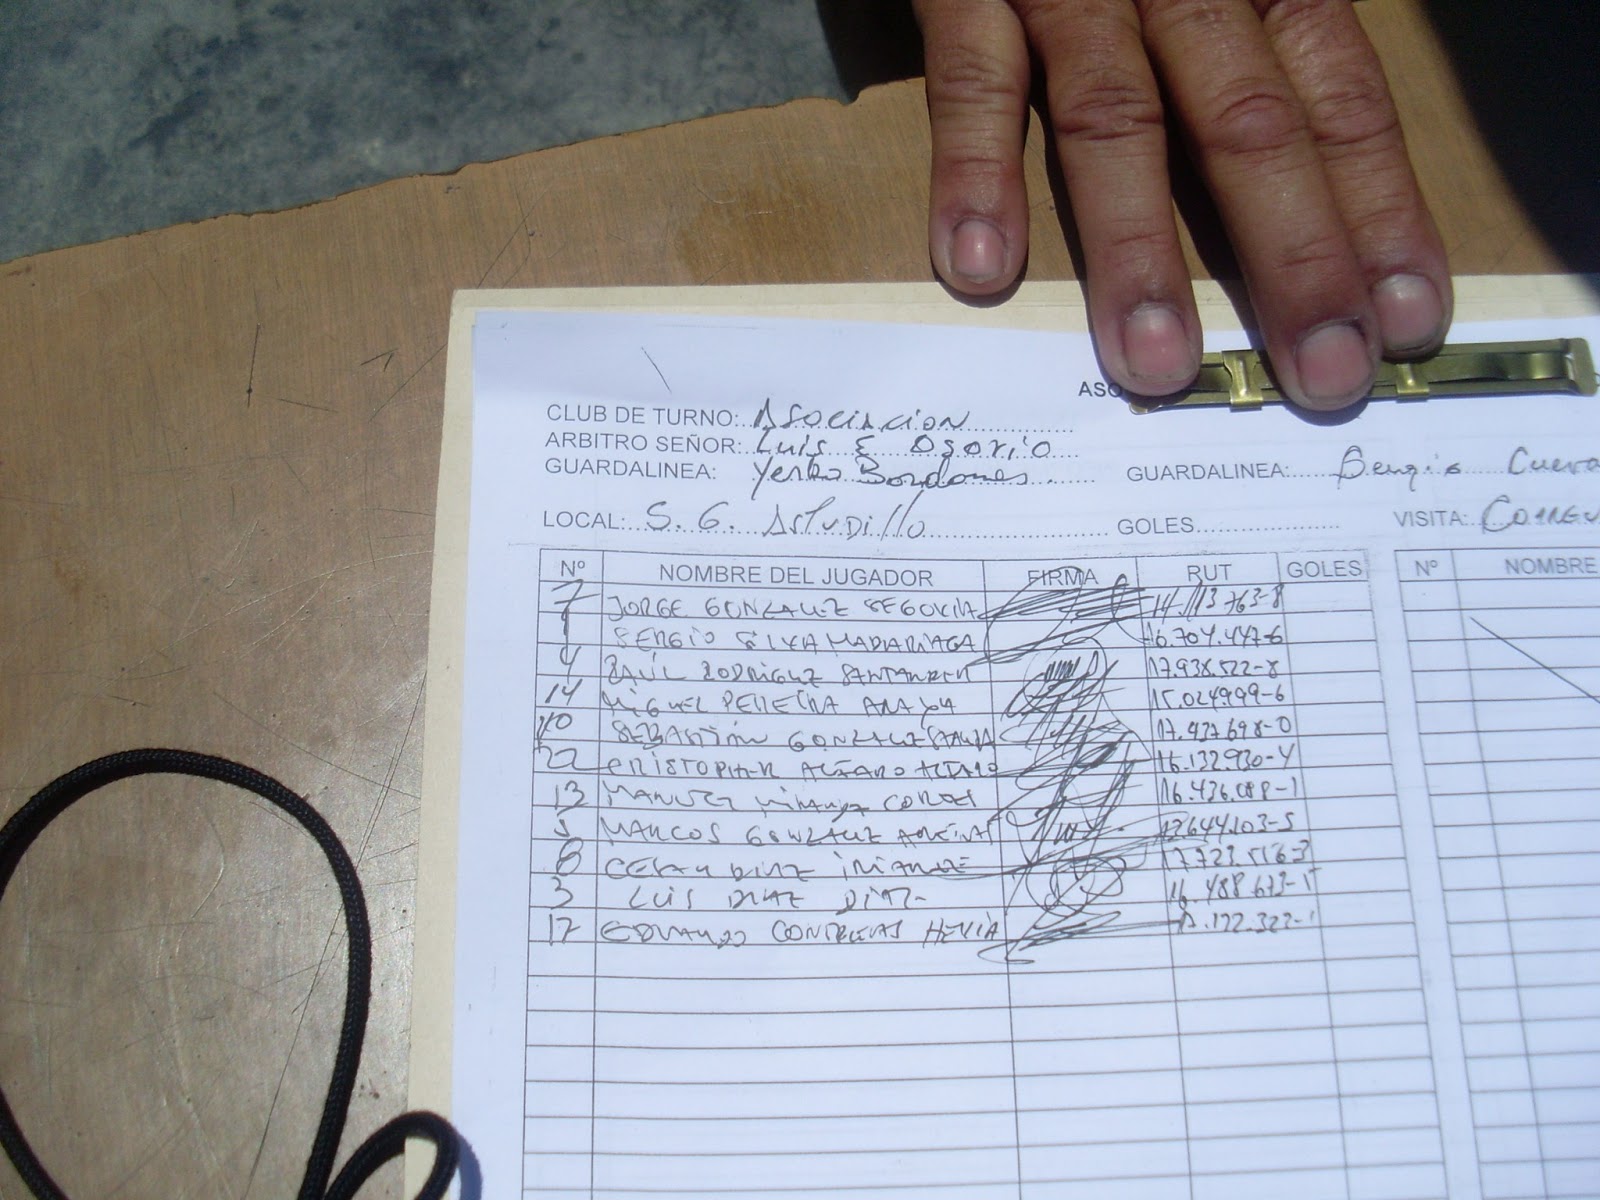 ASO
CLUB DE TURNO: Asociacion
ARBITRO SEÑOR: Luis E Osorio
GUARDALINEA: Yerko Bordones GUARDALINEA: Cueva
LOCAL: S. G. Astudillo GOLES VISITA: Correu
Nº NOMBRE DEL JUGADOR FIRMA RUT GOLES Nº NOMBRE
7 JORGE GONZALEZ SEGOVIA 14.113.763-8
1 SERGIO SILVA MADARIAGA 16.704.447-6
4 RAÚL RODRIGUEZ SANTANDER 17.938.522-8
14 MIGUEL PEREIRA ARAYA 15.024.999-6
10 SEBASTIÁN GONZALEZ 17.437.698-0
22 CRISTOPHER ALFARO ALFARO 16.132.930-4
13 MANUEL MIRANDA CORTES 16.436.088-1
5 MARCOS GONZALEZ 644.103-5
8 CESAR DIAZ IRIARTE 17.723.516-3
3 LUIS DIAZ DIAZ 16.488.673-1
17 EDUARDO CONTRERAS HEVIA .122.322-1